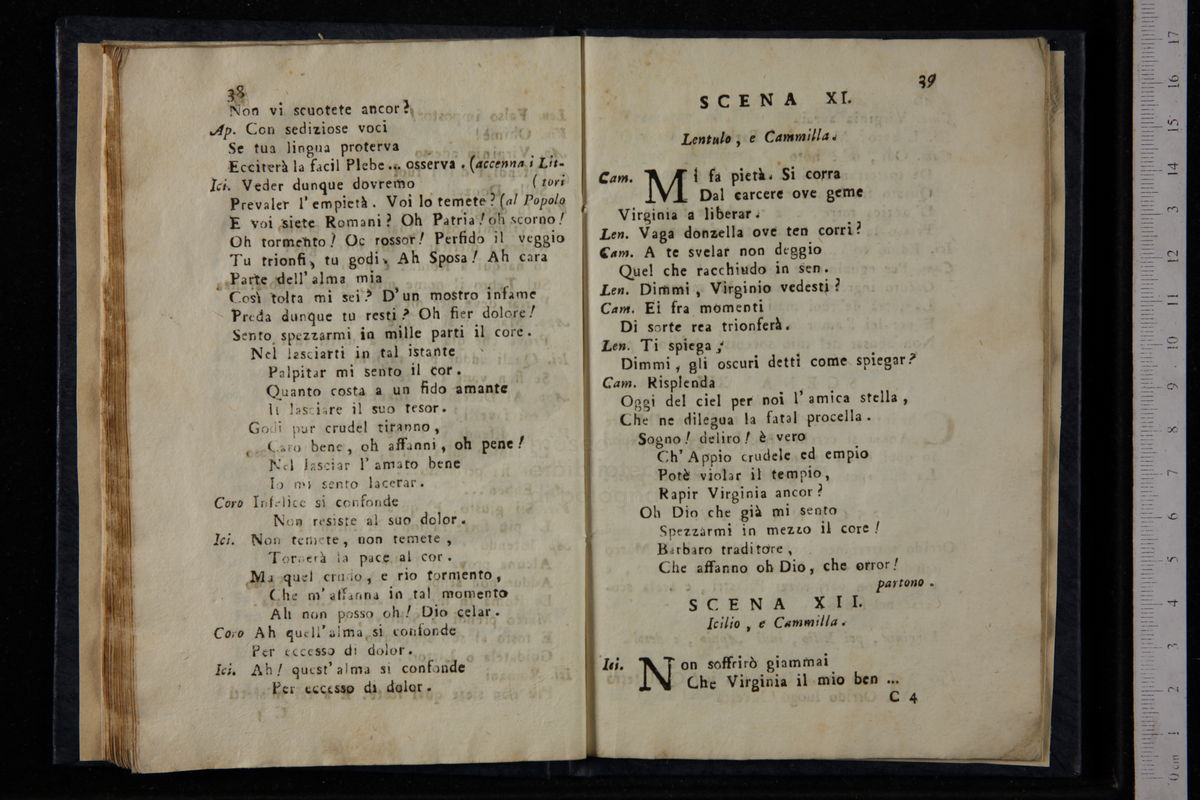 38
Non vi scuotete ancor?
Ap. Con sediziose voci
Se tua lingua proterva
Ecciterà la facil Plebe... osserva. (accenna i Lit-
Ici. Veder dunque dovremo (tori
Prevaler l'empietà. Voi lo temete? (al Popolo
E voi siete Romani? Oh Patria! oh scorno!
Oh tormento! Oc rossor! Perfido il veggio
Tu trionfi, tu godi. Ah Sposa! Ah cara
Parte dell'alma mia
Così tolta mi sei? D'un mostro infame
Preda dunque tu resti? Oh fier dolore!
Sento spezzarmi in mille parti il core.
Nel lasciarti in tal istante
Palpitar mi sento il cor.
Quanto costa a un fido amante
Il lasciare il suo tesor.
Godi pur crudel tiranno,
Caro bene, oh affanni, oh pene!
Nel lasciar l'amato bene
Io mi sento lacerar.
Coro Infelice si confonde
Non resiste al suo dolor.
Ici. Non temete, non temete,
Tornerà la pace al cor.
Ma quel crudo, e rio tormento,
Che m'affanna in tal momento
Ah non posso oh! Dio celar.
Coro Ah quell'alma si confonde
Per eccesso di dolor.
Ici. Ah! quest'alma si confonde
Per eccesso di dolor.
39
SCENA XI.
Lentulo, e Cammilla.
Cam. Mi fa pietà. Si corra
Dal carcere ove geme
Virginia a liberar.
Len. Vaga donzella ove ten corri?
Cam. A te svelar non deggio
Quel che racchiudo in sen.
Len. Dimmi, Virginio vedesti?
Cam. Ei fra momenti
Di sorte rea trionferà.
Len. Ti spiega;
Dimmi, gli oscuri detti come spiegar?
Cam. Risplenda
Oggi del ciel per noi l'amica stella,
Che ne dilegua la fatal procella.
Sogno! deliro! è vero
Ch'Appio crudele ed empio
Potè violar il tempio,
Rapir Virginia ancor?
Oh Dio che già mi sento
Spezzarmi in mezzo il core!
Barbaro traditore,
Che affanno oh Dio, che orror!
partono.
SCENA XII.
Icilio, e Cammilla.
Ici. Non soffrirò giammai
Che Virginia il mio ben ...
C 4
17
16
15
14
13
12
11
10
9
8
7
6
5
4
3
2
1
0 cm